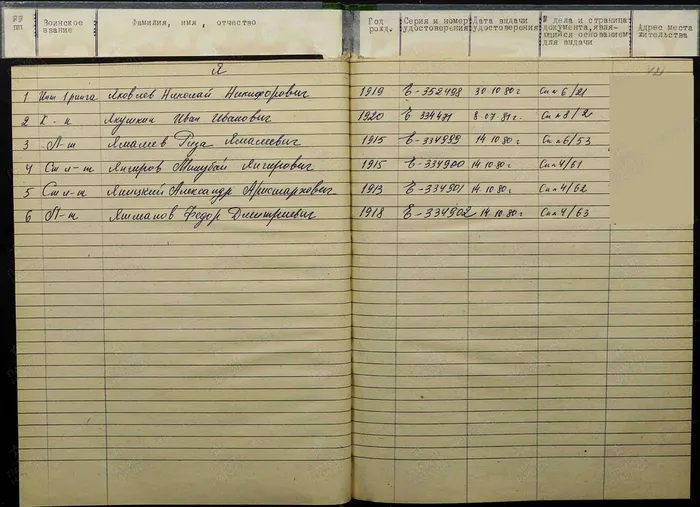 №№ пп Воинское звание Фамилия, имя, отчество Год рожд. Серия и номер удостоверения Дата выдачи удостоверения № дела и страница документа, являющийся основанием для выдачи Адрес места жительства
Я
1 Инт 1 ранга Яковлев Николай Никифорович 1919 Е-352498 30 10.80 г Сп 6/21
2 К-н Якушкин Иван Иванович 1920 Е 334471 8 07.81 г. Сп 8/2
3 Л-т Ямалеев Реза Ямалеевич 1915 Е-334899 14 10.80 г Сп 6/53
4 Ст л-т Янгиров Минубай Янгирович 1915 Е-334900 14 10.80 г. Сп 4/61
5 Ст л-т Яницкий Александр Аристархович 1913 Е-334901 14 10.80 г. Сп 4/62
6 Л-т Яшманов Федор Дмитриевич 1918 Е-334902 14 10.80 г. Сп 4/63